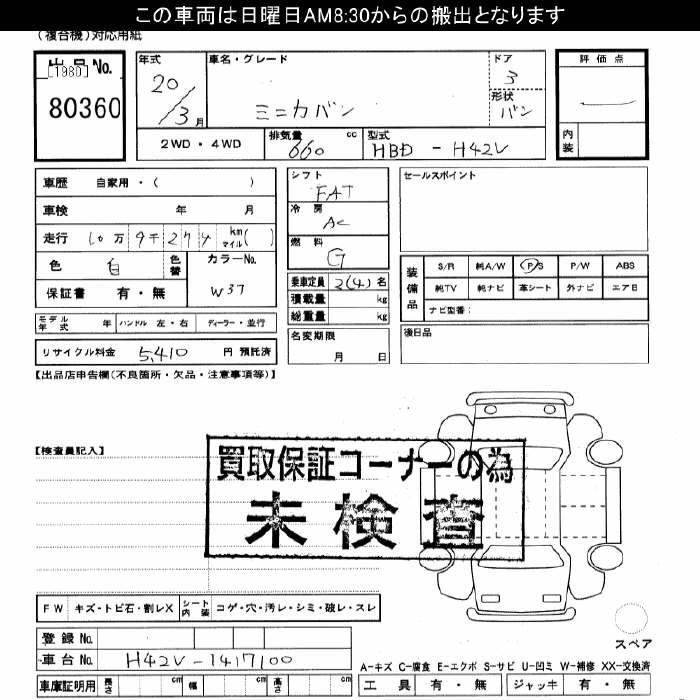 この車両は日曜日AM8:30からの搬出となります
（複合機）対応用紙
出品No.
[1980]
80360
年式
20/3月
車名・グレード
ミニカバン
ドア
3
形状
バン
評価点
内装
2WD・4WD
排気量
660 cc
型式
HBD - H42V
車歴 自家用・( )
車検 年 月
走行 10万 9千 274 km マイル( )
色 白 色替
カラーNo.
W37
保証書 有・無
シフト
FAT
冷房
AC
燃料
G
乗車定員 2(4)名
積載量 kg
総重量 kg
名変期限
月 日
セールスポイント
装備品
S/R 純A/W P/S P/W ABS
純TV 純ナビ 革シート 外ナビ エアB
ナビ型番：
後日品
モデル年式 年 ハンドル 左・右 ディーラー・並行
リサイクル料金 5,410 円 預託済
【出品店申告欄(不良箇所・欠品・注意事項等)】
【検査員記入】
買取保証コーナーの為
未検査
FW キズ・トビ石・割レX シート内装 コゲ・穴・汚レ・シミ・破レ・スレ
スペア
登録No.
車台No. H42V-1417100
A-キズ C-腐食 E-エクボ S-サビ U-凹ミ W-補修 XX-交換済
車庫証明用 長さ cm 幅 cm 高さ cm
工具 有・無 ジャッキ 有・無